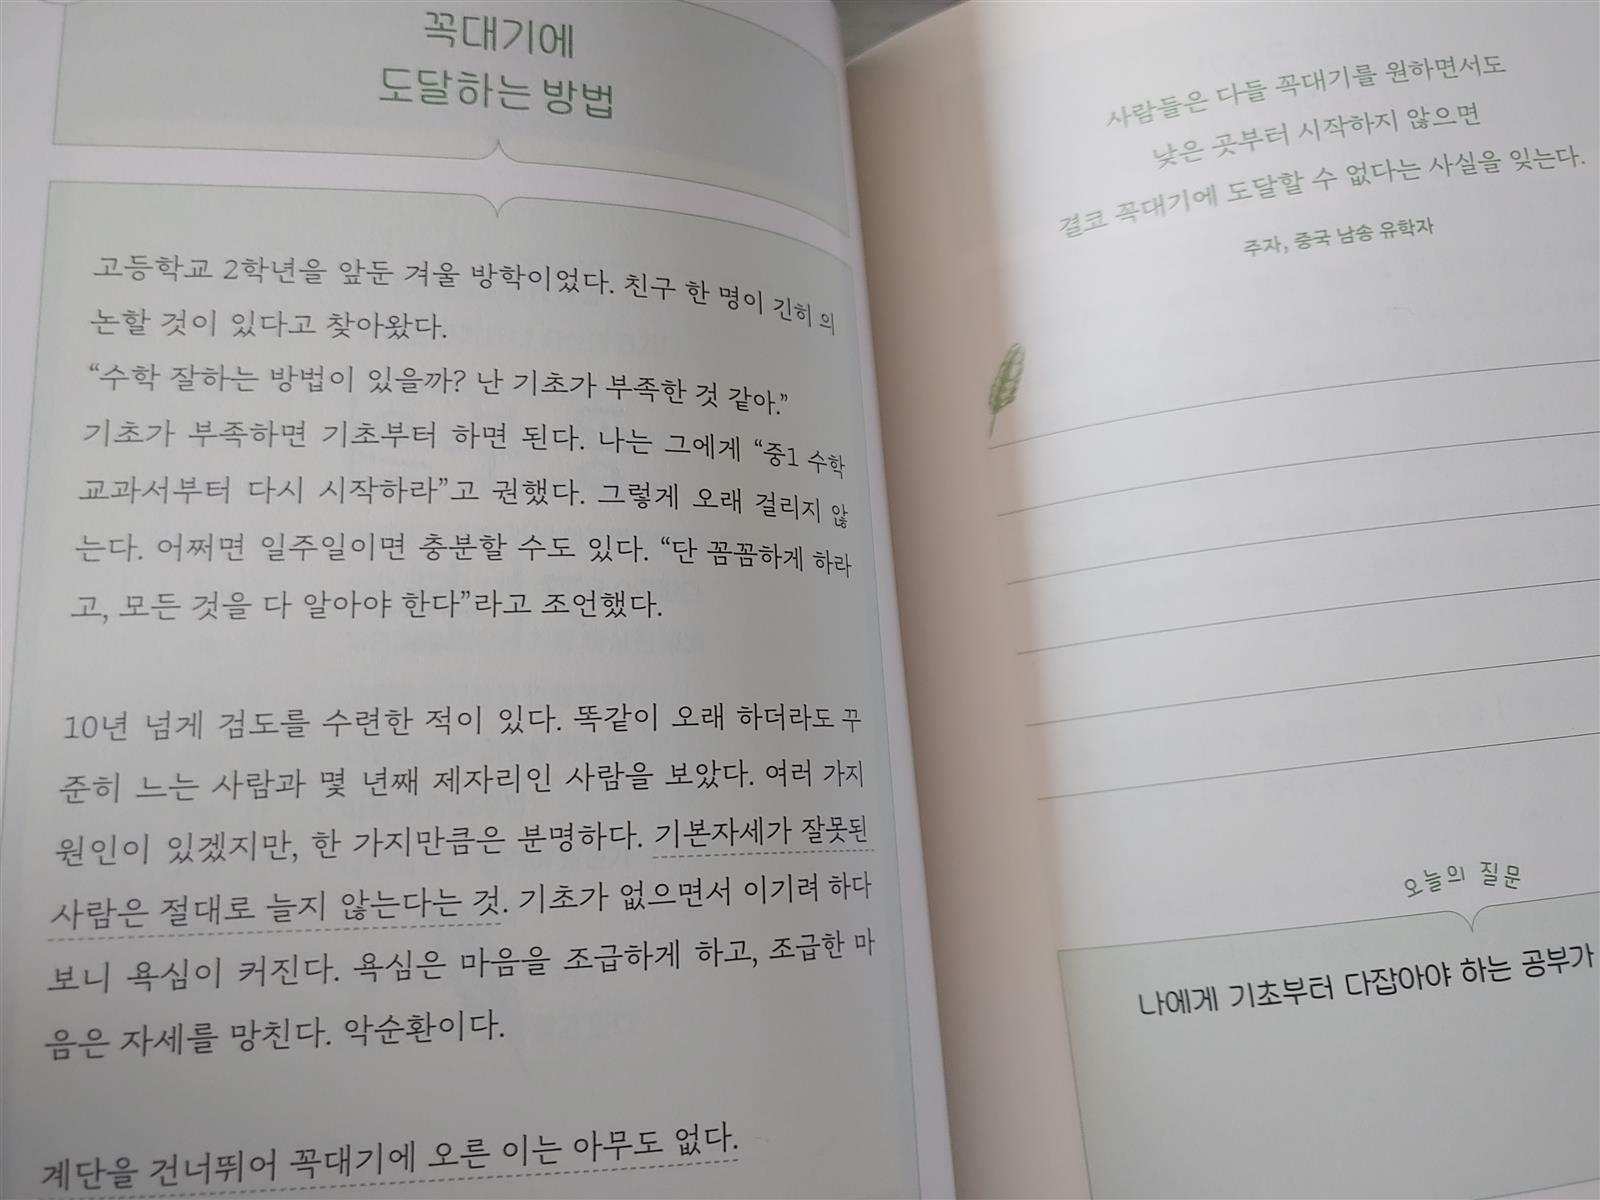 꼭대기에
도달하는 방법
고등학교 2학년을 앞둔 겨울 방학이었다. 친구 한 명이 긴히 의
논할 것이 있다고 찾아왔다.
“수학 잘하는 방법이 있을까? 난 기초가 부족한 것 같아.”
기초가 부족하면 기초부터 하면 된다. 나는 그에게 “중1 수학
교과서부터 다시 시작하라”고 권했다. 그렇게 오래 걸리지 않
는다. 어쩌면 일주일이면 충분할 수도 있다. “단 꼼꼼하게 하라
고, 모든 것을 다 알아야 한다”라고 조언했다.
10년 넘게 검도를 수련한 적이 있다. 똑같이 오래 하더라도 꾸
준히 느는 사람과 몇 년째 제자리인 사람을 보았다. 여러 가지
원인이 있겠지만, 한 가지만큼은 분명하다. 기본자세가 잘못된
사람은 절대로 늘지 않는다는 것. 기초가 없으면서 이기려 하다
보니 욕심이 커진다. 욕심은 마음을 조급하게 하고, 조급한 마
음은 자세를 망친다. 악순환이다.
계단을 건너뛰어 꼭대기에 오른 이는 아무도 없다.
사람들은 다들 꼭대기를 원하면서도
낮은 곳부터 시작하지 않으면
결코 꼭대기에 도달할 수 없다는 사실을 잊는다.
주자, 중국 남송 유학자
오늘의 질문
나에게 기초부터 다잡아야 하는 공부가